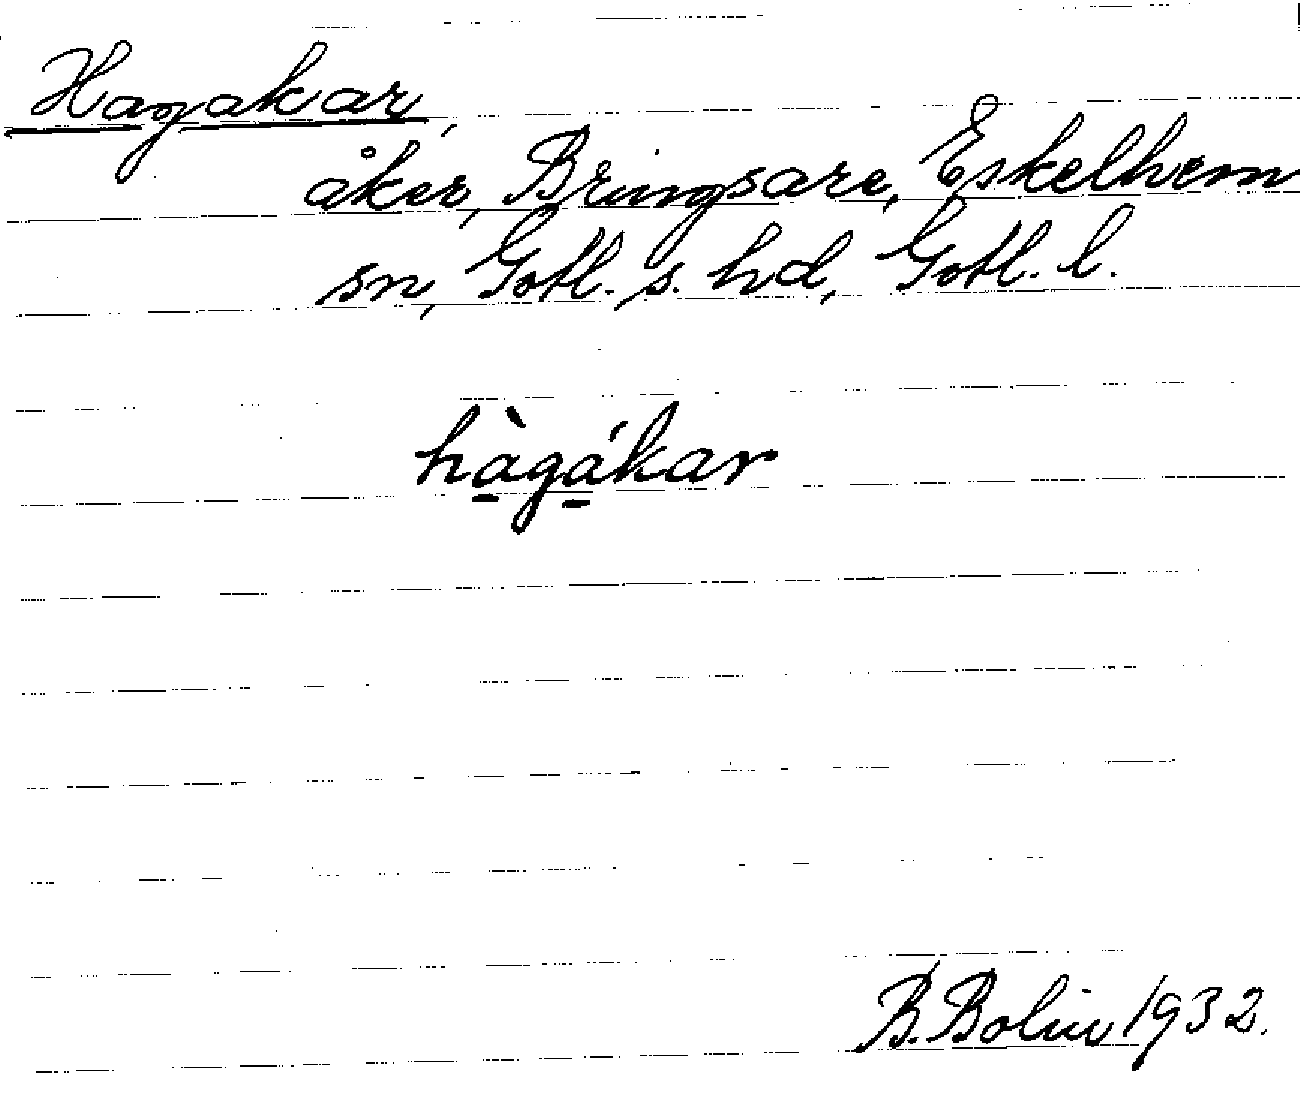 Hagakar,
åker, Bringsare, Eskelhem
sn, Gotl. s. hd, Gotl. l.
hà̱gá̱kar
B. Bolin 1932.